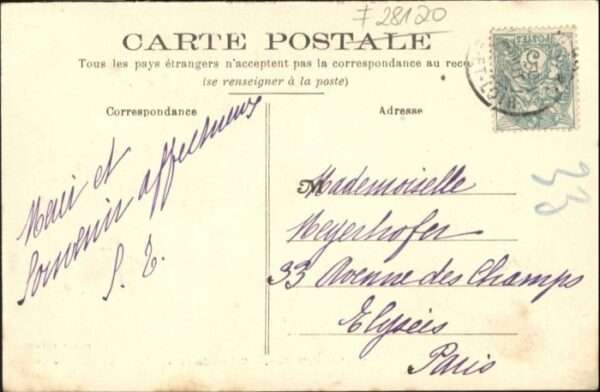 # 28120
CARTE POSTALE
Tous les pays étrangers n'acceptent pas la correspondance au recto
(se renseigner à la poste)
Correspondance
Adresse
Merci et
Souvenir affectueux
S. T.
Mademoiselle
Meyerhofer
33 Avenue des Champs
Elyseés
Paris
33